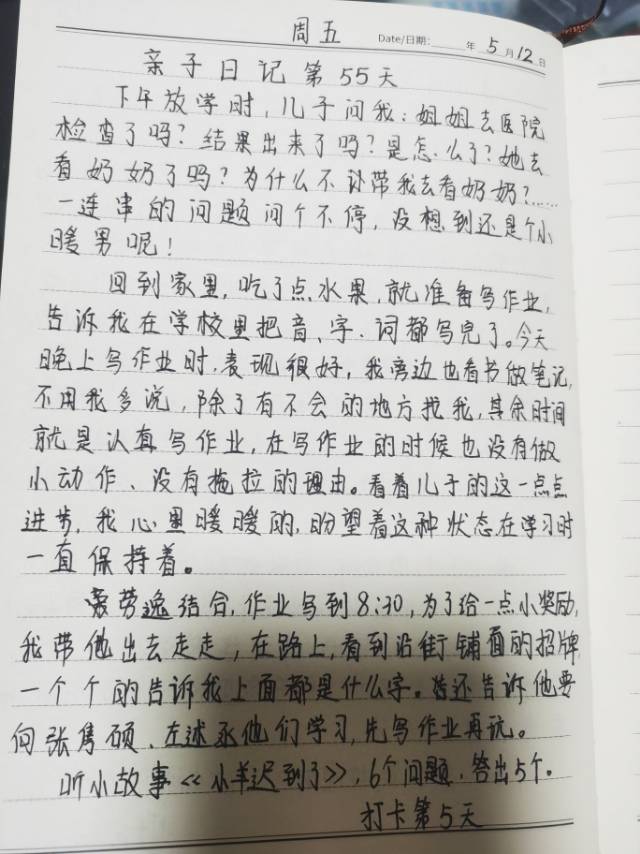 周五 Date/日期: 年 5月12日
亲子日记第55天
下午放学时,儿子问我:姐姐去医院
检查了吗?结果出来了吗?是怎么了?她去
看奶奶了吗?为什么不让带我去看奶奶?……
一连串的问题问个不停,没想到还是个小
暖男呢!
回到家里,吃了点水果,就准备写作业,
告诉我在学校里把音、字、词都写完了。今天
晚上写作业时,表现很好,我旁边也看书做笔记,
不用我多说,除了有不会的地方找我,其余时间
就是认真写作业,在写作业的时候也没有做
小动作、没有拖拉的理由。看着儿子的这一点点
进步,我心里暖暖的,盼望着这种状态在学习时
一直保持着。
劳逸结合,作业写到8:30,为了给一点小奖励,
我带他出去走走,在路上,看到沿街铺面的招牌
一个个的告诉我上面都是什么字。还告诉他要
向张隽硕、左述丞他们学习,先写作业再玩。
听小故事《小羊迟到了》,6个问题,答出5个。
打卡第5天